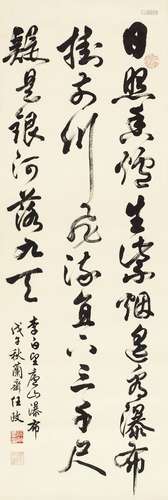 日照香爐生紫烟遙看瀑布
掛前川飛流直下三千尺
疑是銀河落九天
李白望廬山瀑布
戊午秋蘭齋任政